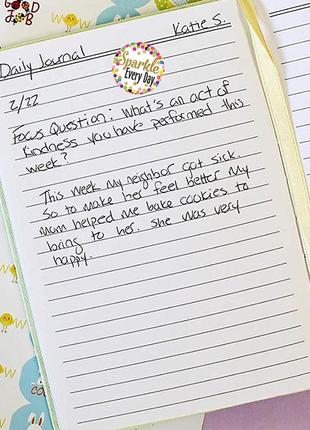 GOOD
JOB
Daily Journal
Katie S.
Sparkle
Every Day
2/22
Focus Question: What's an act of
kindness you have performed this
week?
This week my neighbor got sick.
So to make her feel better my
mom helped me bake cookies to
bring to her. She was very
happy.